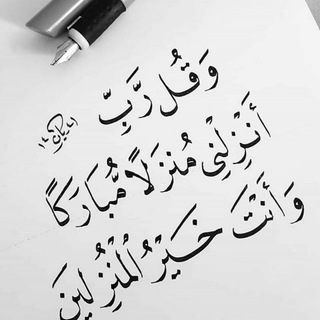 وَقُل رَّبِّ
أَنزِلْنِي مُنزَلًا مُّبَارَكًا
وَأَنتَ خَيْرُ الْمُنزِلِينَ